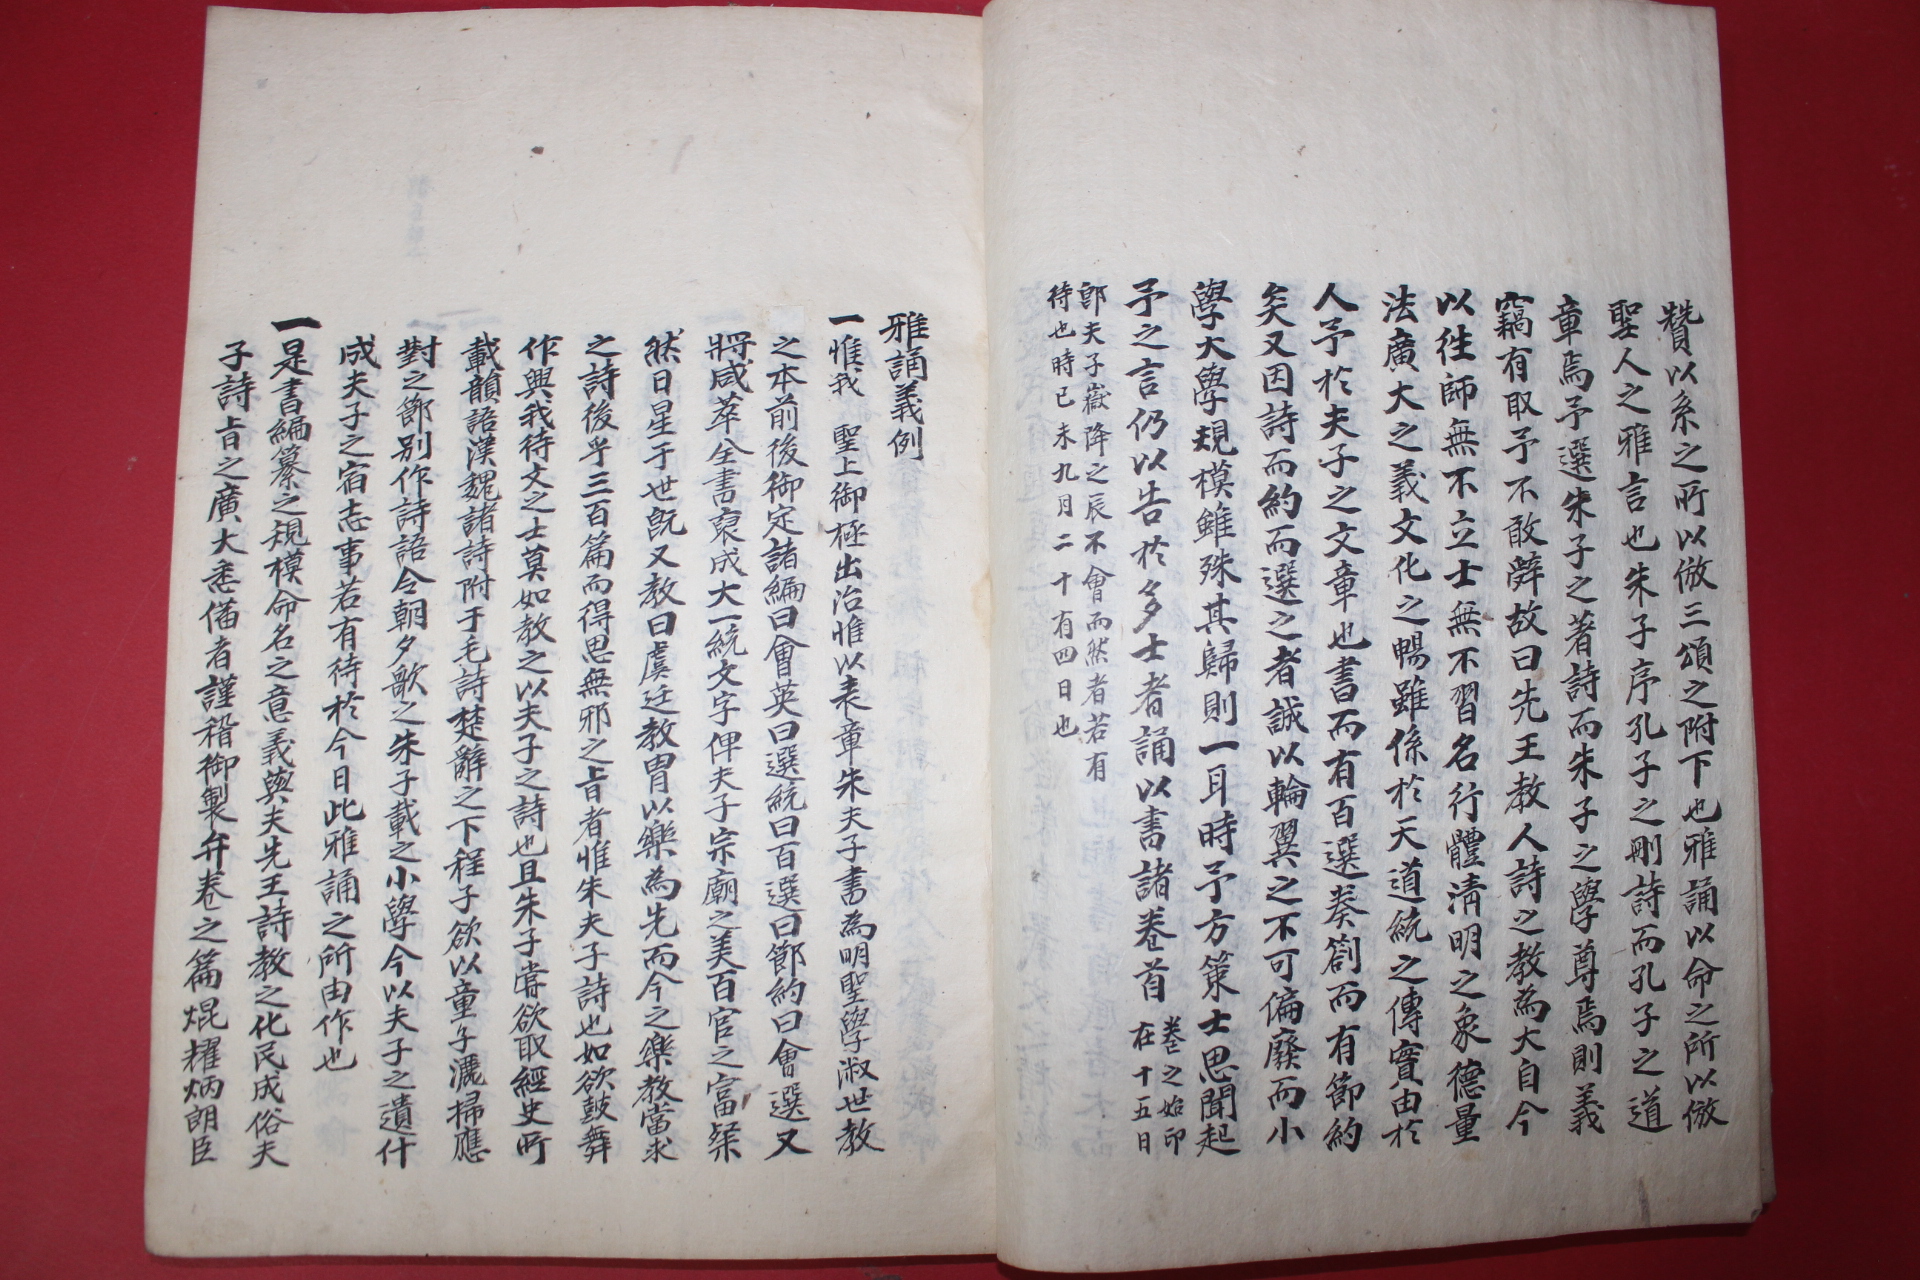 贊以系之所以倣三頌之附下也雅誦以命之所以倣
聖人之雅言也朱子序孔子之刪詩而孔子之道
章焉予選朱子之著詩而朱子之學尊焉則義
竊有取予不敢辭故曰先王教人詩之教為大自今
以徃師無不立士無不習名行體淸明之象德量
法廣大之義文化之暢雖係於天道統之傳實由於
人予於夫子之文章也書而有百選奏箚而有節約
矣又因詩而約而選之者誠以輪翼之不可偏廢而小
學大學規模雖殊其歸則一耳時予方策士思聞起
予之言仍以告於多士者誦以書諸卷首
卷之始印
在十五日
郎夫子嶽降之辰不會而然者若有
待也時已未九月二十有四日也
雅誦義例
一惟我 聖上御極出治惟以表章朱夫子書為明聖學淑世教
之本前後御定諸編曰會英曰選統曰百選曰節約曰會選又
將咸萃全書裒成大一統文字俾夫子宗廟之美百官之富粲
然日星于世旣又教曰虞廷教胄以樂為先而今之樂教當求
之詩後乎三百篇而得思無邪之旨者惟朱夫子詩也如欲鼓舞
作興我待文之士莫如教之以夫子之詩也且朱子嘗欲取經史所
載韻語漢魏諸詩附于毛詩楚辭之下程子欲以童子灑掃應
對之節別作詩語令朝夕歌之朱子載之小學今以夫子之遺什
成夫子之宿志事若有待於今日此雅誦之所由作也
一是書編纂之規模命名之意義與夫先王詩教之化民成俗夫
子詩旨之廣大悉備者謹稽御製弁卷之篇焜耀炳朗臣